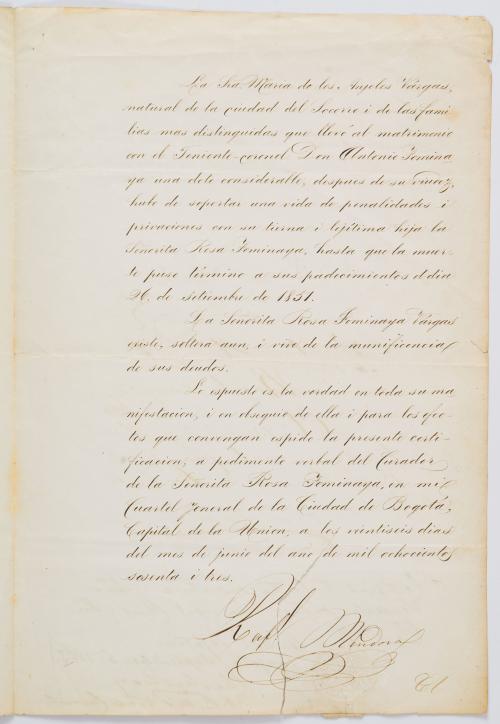 La Sra. Maria de los Anjeles Várgas,
natural de la ciudad del Socorro i de las fami-
lias mas distinguidas que llevó al matrimonio
con el Teniente-coronel Don Antonio Fomina-
ya una dote considerable, despues de su viudez,
hubo de soportar una vida de penalidades i
privaciones con su tierna i lejítima hija la
Señorita Rosa Fominaya, hasta que la muer-
te puso término a sus padecimientos el dia
de setiembre de 1851.
La Señorita Rosa Fominaya Várgas
existe, soltera aun, i vive de la munificencia
de sus deudos.
Lo espuesto es la verdad en toda su ma-
nifestacion, i en obsequio de ella i para los efec-
tos que convengan espido la presente certi-
ficacion, a pedimento verbal del Curador
de la Señorita Rosa Fominaya, en mi
Cuartel Jeneral de la Ciudad de Bogotá,
Capital de la Union, a los veintiseis dias
del mes de junio del año de mil ochocientos
sesenta i tres.
Raf. Mendoza